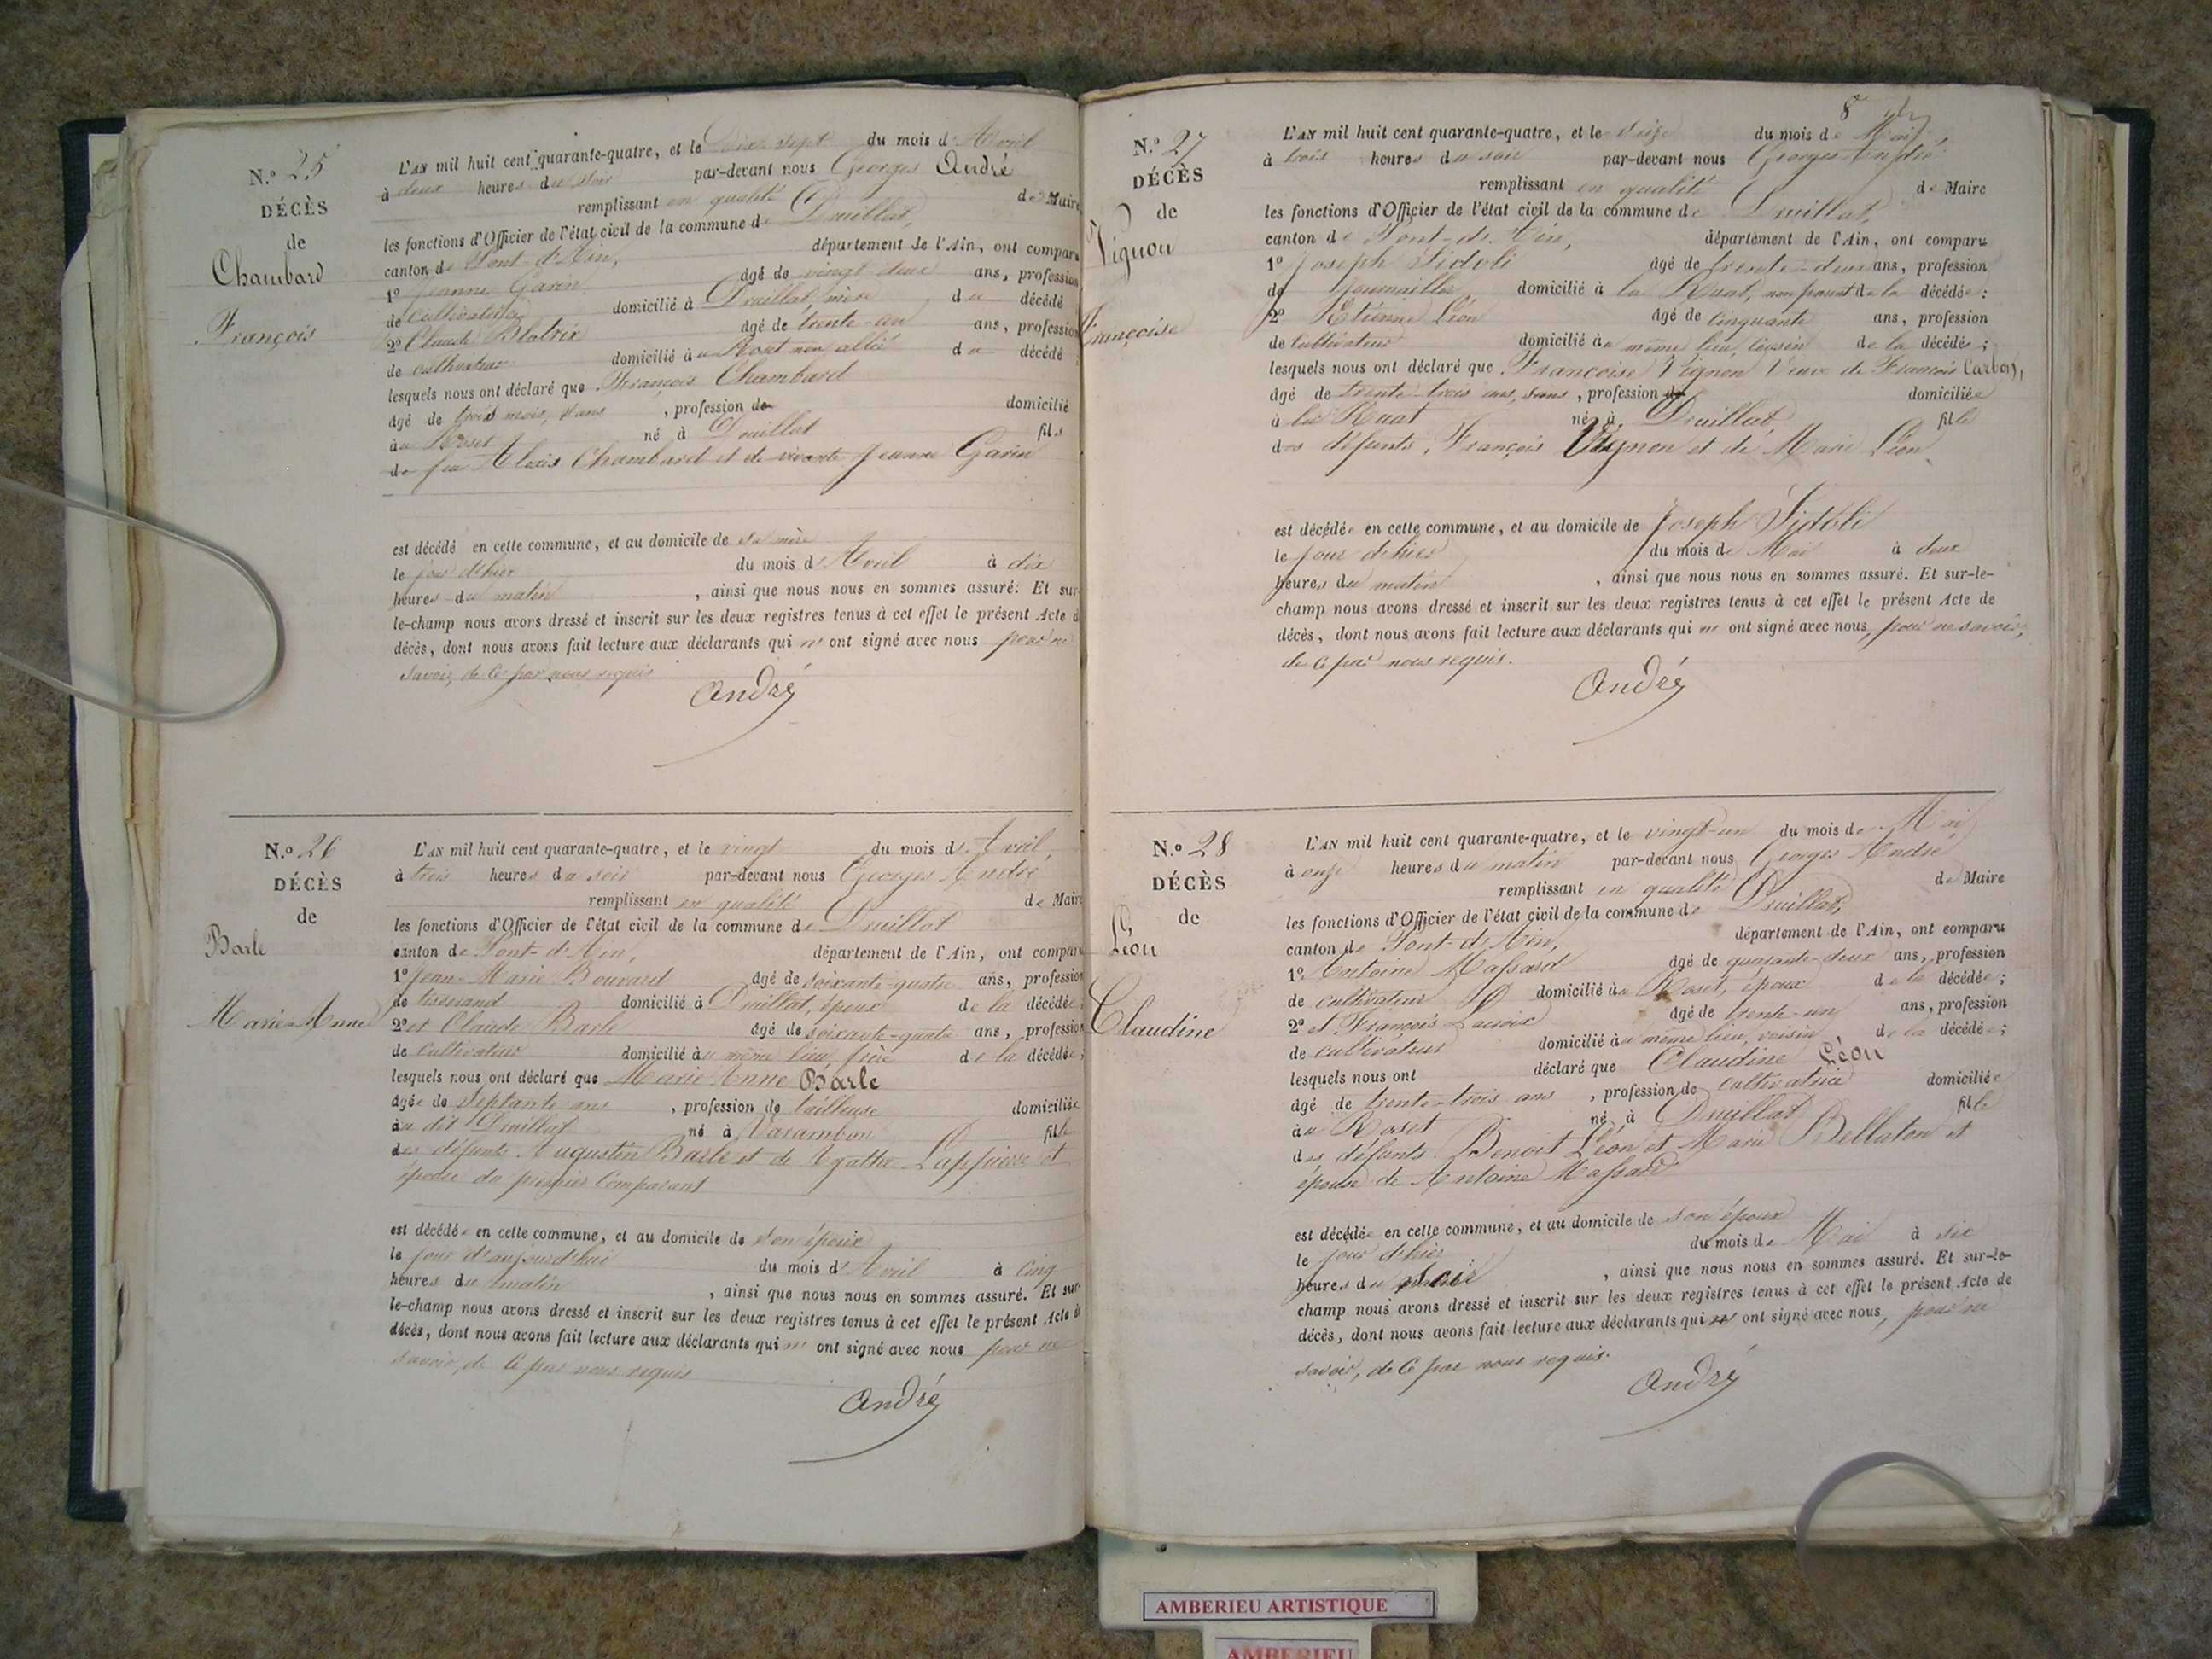 N.° 25
DÉCÈS
de
Chambard
François
L'AN mil huit cent quarante-quatre, et le Dix sept du mois d'Avril
à deux heures du soir par-devant nous Georges André
remplissant en qualité de Maire
les fonctions d'Officier de l'état civil de la commune de Druillat,
canton de Pont-d'Ain, département de l'Ain, ont comparu
1° Jeanne Garin âgé de vingt deux ans, profession
de cultivatrice domicilié à Druillat, mère du décédé
2° Claude Blatrix âgé de trente-un ans, profession
de cultivateur domicilié au Roset non allié du décédé
lesquels nous ont déclaré que François Chambard
âgé de trois mois, sans, profession de domicilié
au Roset né à Druillat fils
de feu Alexis Chambard et de vivante Jeanne Garin
est décédé en cette commune, et au domicile de sa mère
le jour d'hier du mois d'Avril à dix
heures du matin, ainsi que nous nous en sommes assuré. Et sur-
le-champ nous avons dressé et inscrit sur les deux registres tenus à cet effet le présent Acte d
décès, dont nous avons fait lecture aux déclarants qui n' ont signé avec nous pour ne
savoir, de ce par nous requis
André
N.° 26
DÉCÈS
de
Barle
Marie Anne
L'AN mil huit cent quarante-quatre, et le vingt du mois d'Avril,
à trois heures du soir par-devant nous Georges André,
remplissant en qualité de Maire
les fonctions d'Officier de l'état civil de la commune de Druillat
canton de Pont-d'Ain, département de l'Ain, ont comparu
1° Jean-Marie Bouvard âgé de soixante-quatre ans, profession
de tisserand domicilié à Druillat, époux de la décédée
2° et Claude Barle âgé de soixante-quatre ans, profession
de cultivateur domicilié au même lieu, frère de la décédée
lesquels nous ont déclaré que Marie Anne Barle
âgée de septante ans, profession de tailleuse domiciliée
au dit Druillat né à Varambon fille
des défunts Augustin Barle et de Agathe Lappierre et
épouse du premier Comparant
est décédée en cette commune, et au domicile de son époux
le jour d'aujourd'hui du mois d'Avril à cinq
heures du matin, ainsi que nous nous en sommes assuré. Et sur-
le-champ nous avons dressé et inscrit sur les deux registres tenus à cet effet le présent Acte d
décès, dont nous avons fait lecture aux déclarants qui n' ont signé avec nous pour ne
savoir, de ce par nous requis
André
8
N.° 27
DÉCÈS
de
Vignon
Françoise
L'AN mil huit cent quarante-quatre, et le seize du mois de Mai,
à trois heures du soir par-devant nous Georges André
remplissant en qualité de Maire
les fonctions d'Officier de l'état civil de la commune de Druillat,
canton de Pont-d'Ain, département de l'Ain, ont comparu
1° Joseph Sidoli âgé de trente-deux ans, profession
de journalier domicilié à la Ruat, non parent de la décédée:
2° Etienne Léon âgé de cinquante ans, profession
de cultivateur domicilié au même lieu, cousin de la décédée;
lesquels nous ont déclaré que Françoise Vignon Veuve de François Carbon,
âgé de trente-trois ans, sans, profession de domiciliée
à la Ruat né à Druillat, fille
des défunts, François Vignon et de Marie Léon
est décédée en cette commune, et au domicile de Joseph Sidoli
le jour d'hier du mois de Mai à deux
heures du matin, ainsi que nous nous en sommes assuré. Et sur-le-
champ nous avons dressé et inscrit sur les deux registres tenus à cet effet le présent Acte de
décès, dont nous avons fait lecture aux déclarants qui n' ont signé avec nous, pour ne savoir,
de ce par nous requis.
André
N.° 28
DÉCÈS
de
Léon
Claudine
L'AN mil huit cent quarante-quatre, et le vingt-un du mois de Mai,
à onze heures du matin par-devant nous Georges André
remplissant en qualité de Maire
les fonctions d'Officier de l'état civil de la commune de Druillat,
canton de Pont-d'Ain, département de l'Ain, ont comparu
1° Antoine Massard âgé de quarante-deux ans, profession
de cultivateur domicilié au Roset, époux de la décédée;
2° et François Lacroix âgé de trente-un ans, profession
de cultivateur domicilié au même lieu, voisin de la décédée;
lesquels nous ont déclaré que Claudine Léon
âgé de trente-trois ans, profession de cultivatrice domiciliée
au Roset né à Druillat fille
des défunts Benoit Léon et Marie Bellaton et
épouse de Antoine Massard
est décédée en cette commune, et au domicile de son époux
le jour d'hier du mois de Mai à six
heures du soir, ainsi que nous nous en sommes assuré. Et sur-le-
champ nous avons dressé et inscrit sur les deux registres tenus à cet effet le présent Acte de
décès, dont nous avons fait lecture aux déclarants qui n' ont signé avec nous, pour ne
savoir, de ce par nous requis.
André
AMBERIEU ARTISTIQUE
AMBERIEU